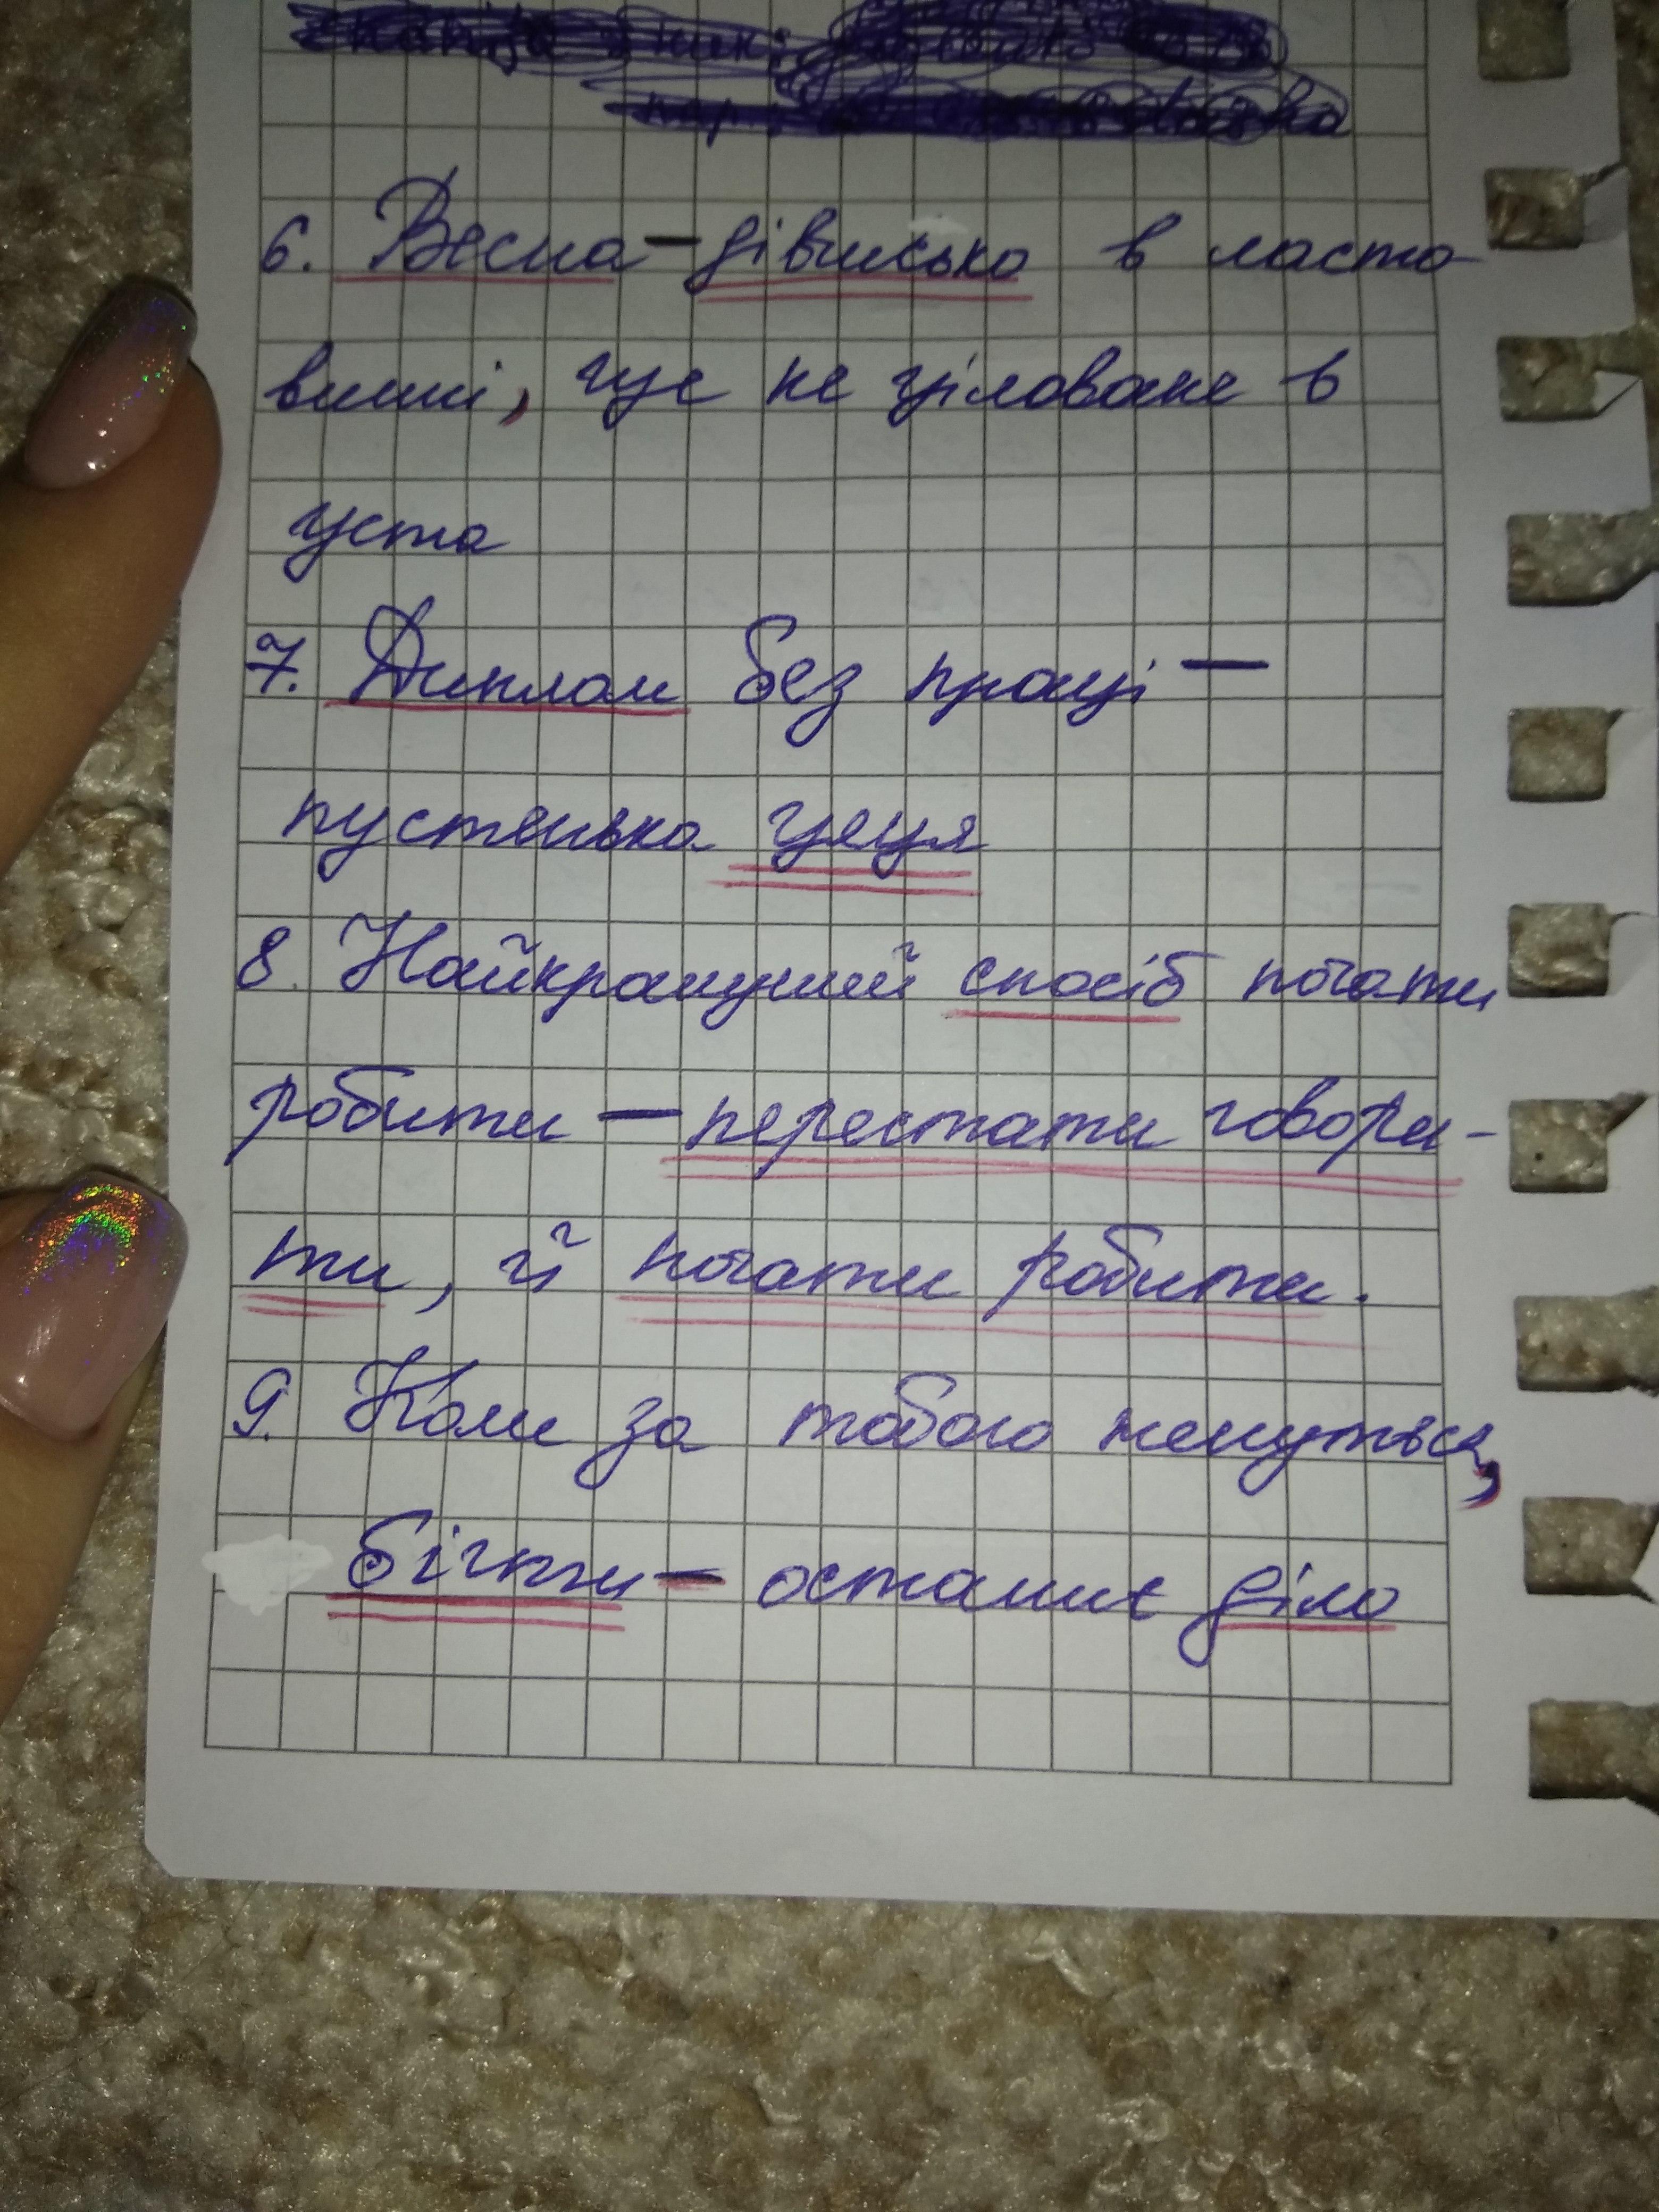 6. Весна – дівчисько в ласто
винні, чує не ціловане в
уста
7. Диплом без праці –
пустенька цяця
8. Найкращий спосіб почати
робити – перестати говори-
ти, й почати робити.
9. Коли за тобою женуться,
бігти – останнє діло